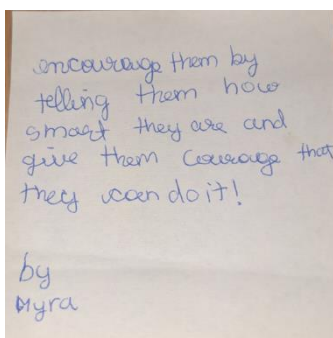 encourage them by
telling them how
smart they are and
give them courage that
they can do it!
by
Myra